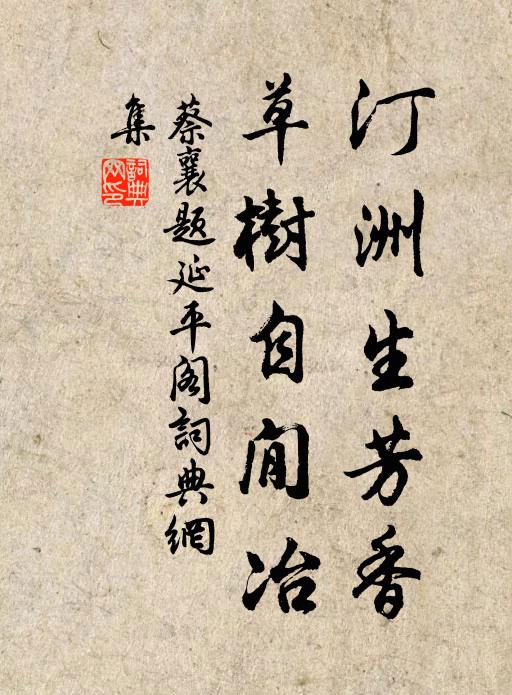 汀洲生芳香
草樹自閒冶
蔡襄題延平閣詞典網
集
詞典
网印